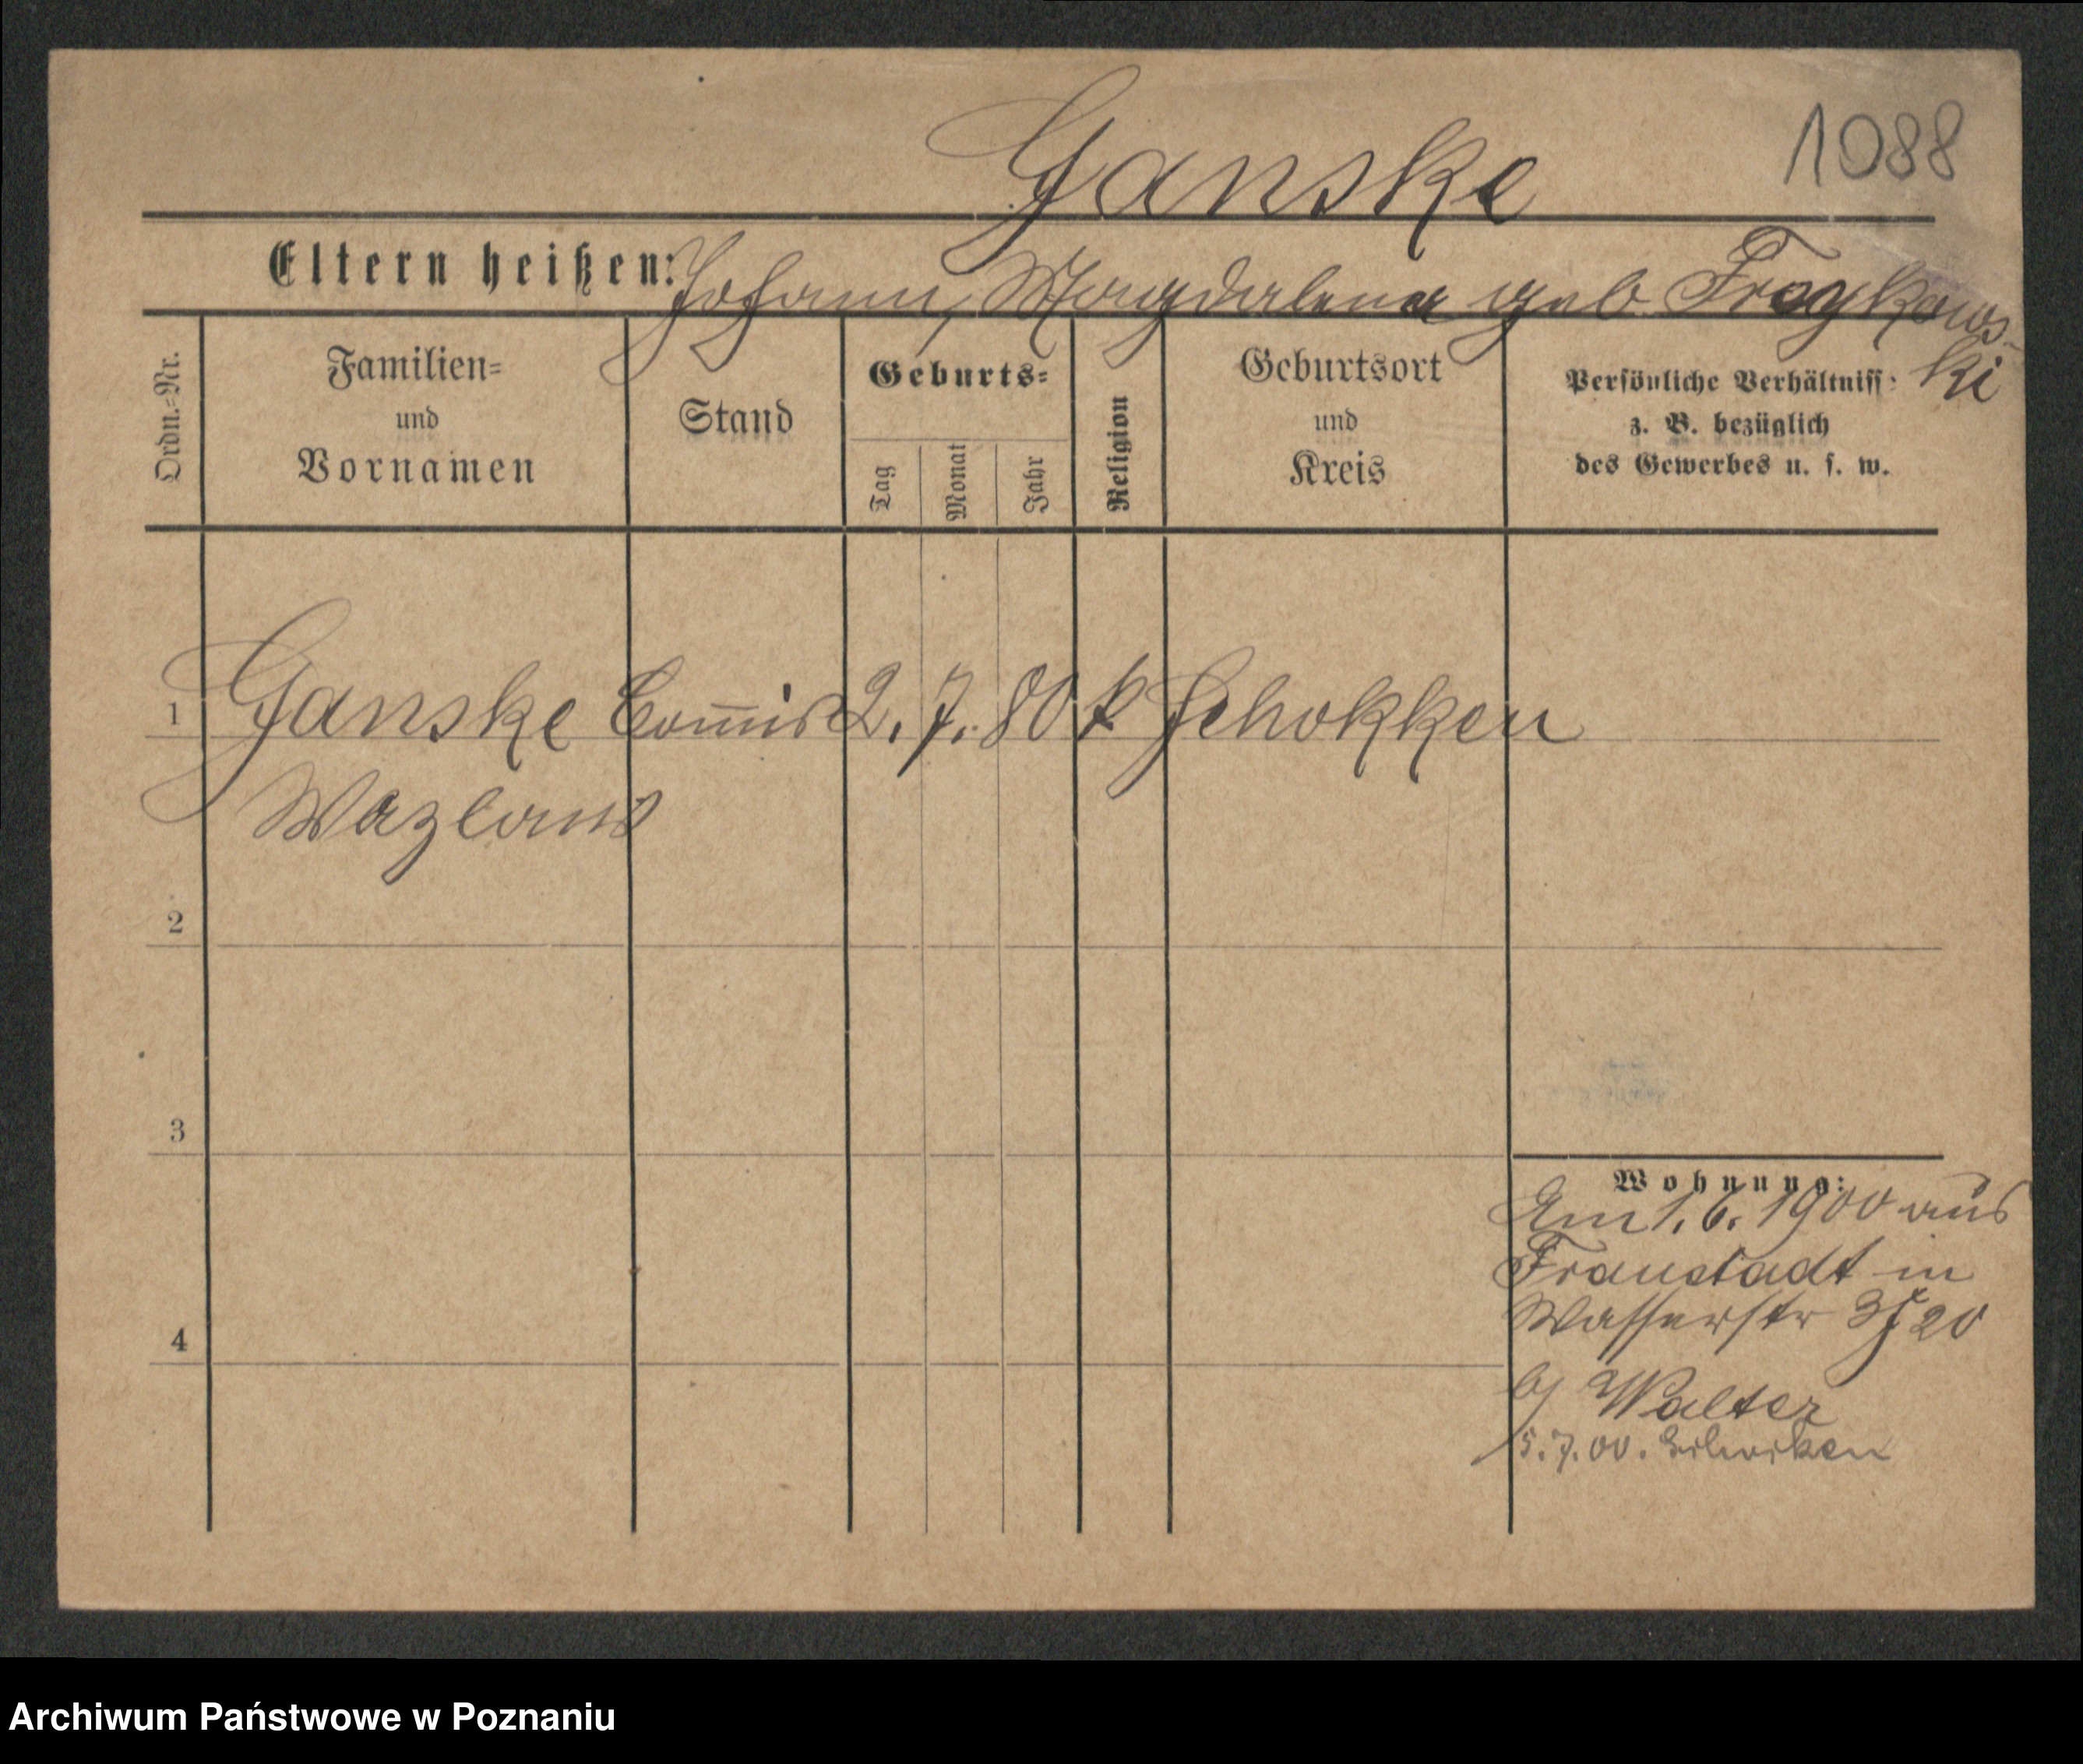 Ganske
1088
Eltern heißen: Johann, Magdalena geb Froykows-
ki
Ordn.-Nr.
Familien-
und
Vornamen
Stand
Geburts-
Tag
Monat
Jahr
Religion
Geburtsort
und
Kreis
Persönliche Verhältniss
z. B. bezüglich
des Gewerbes u. s. w.
1 Ganske Com̅is 2. 7. 80 k Schokken
Wazlaus
2
3
Wohnung:
Am 1. 6. 1900 aus
Fraustadt in
4
Wasserstr 20
b/ Walter
5. 7. 00.
Archiwum Państwowe w Poznaniu